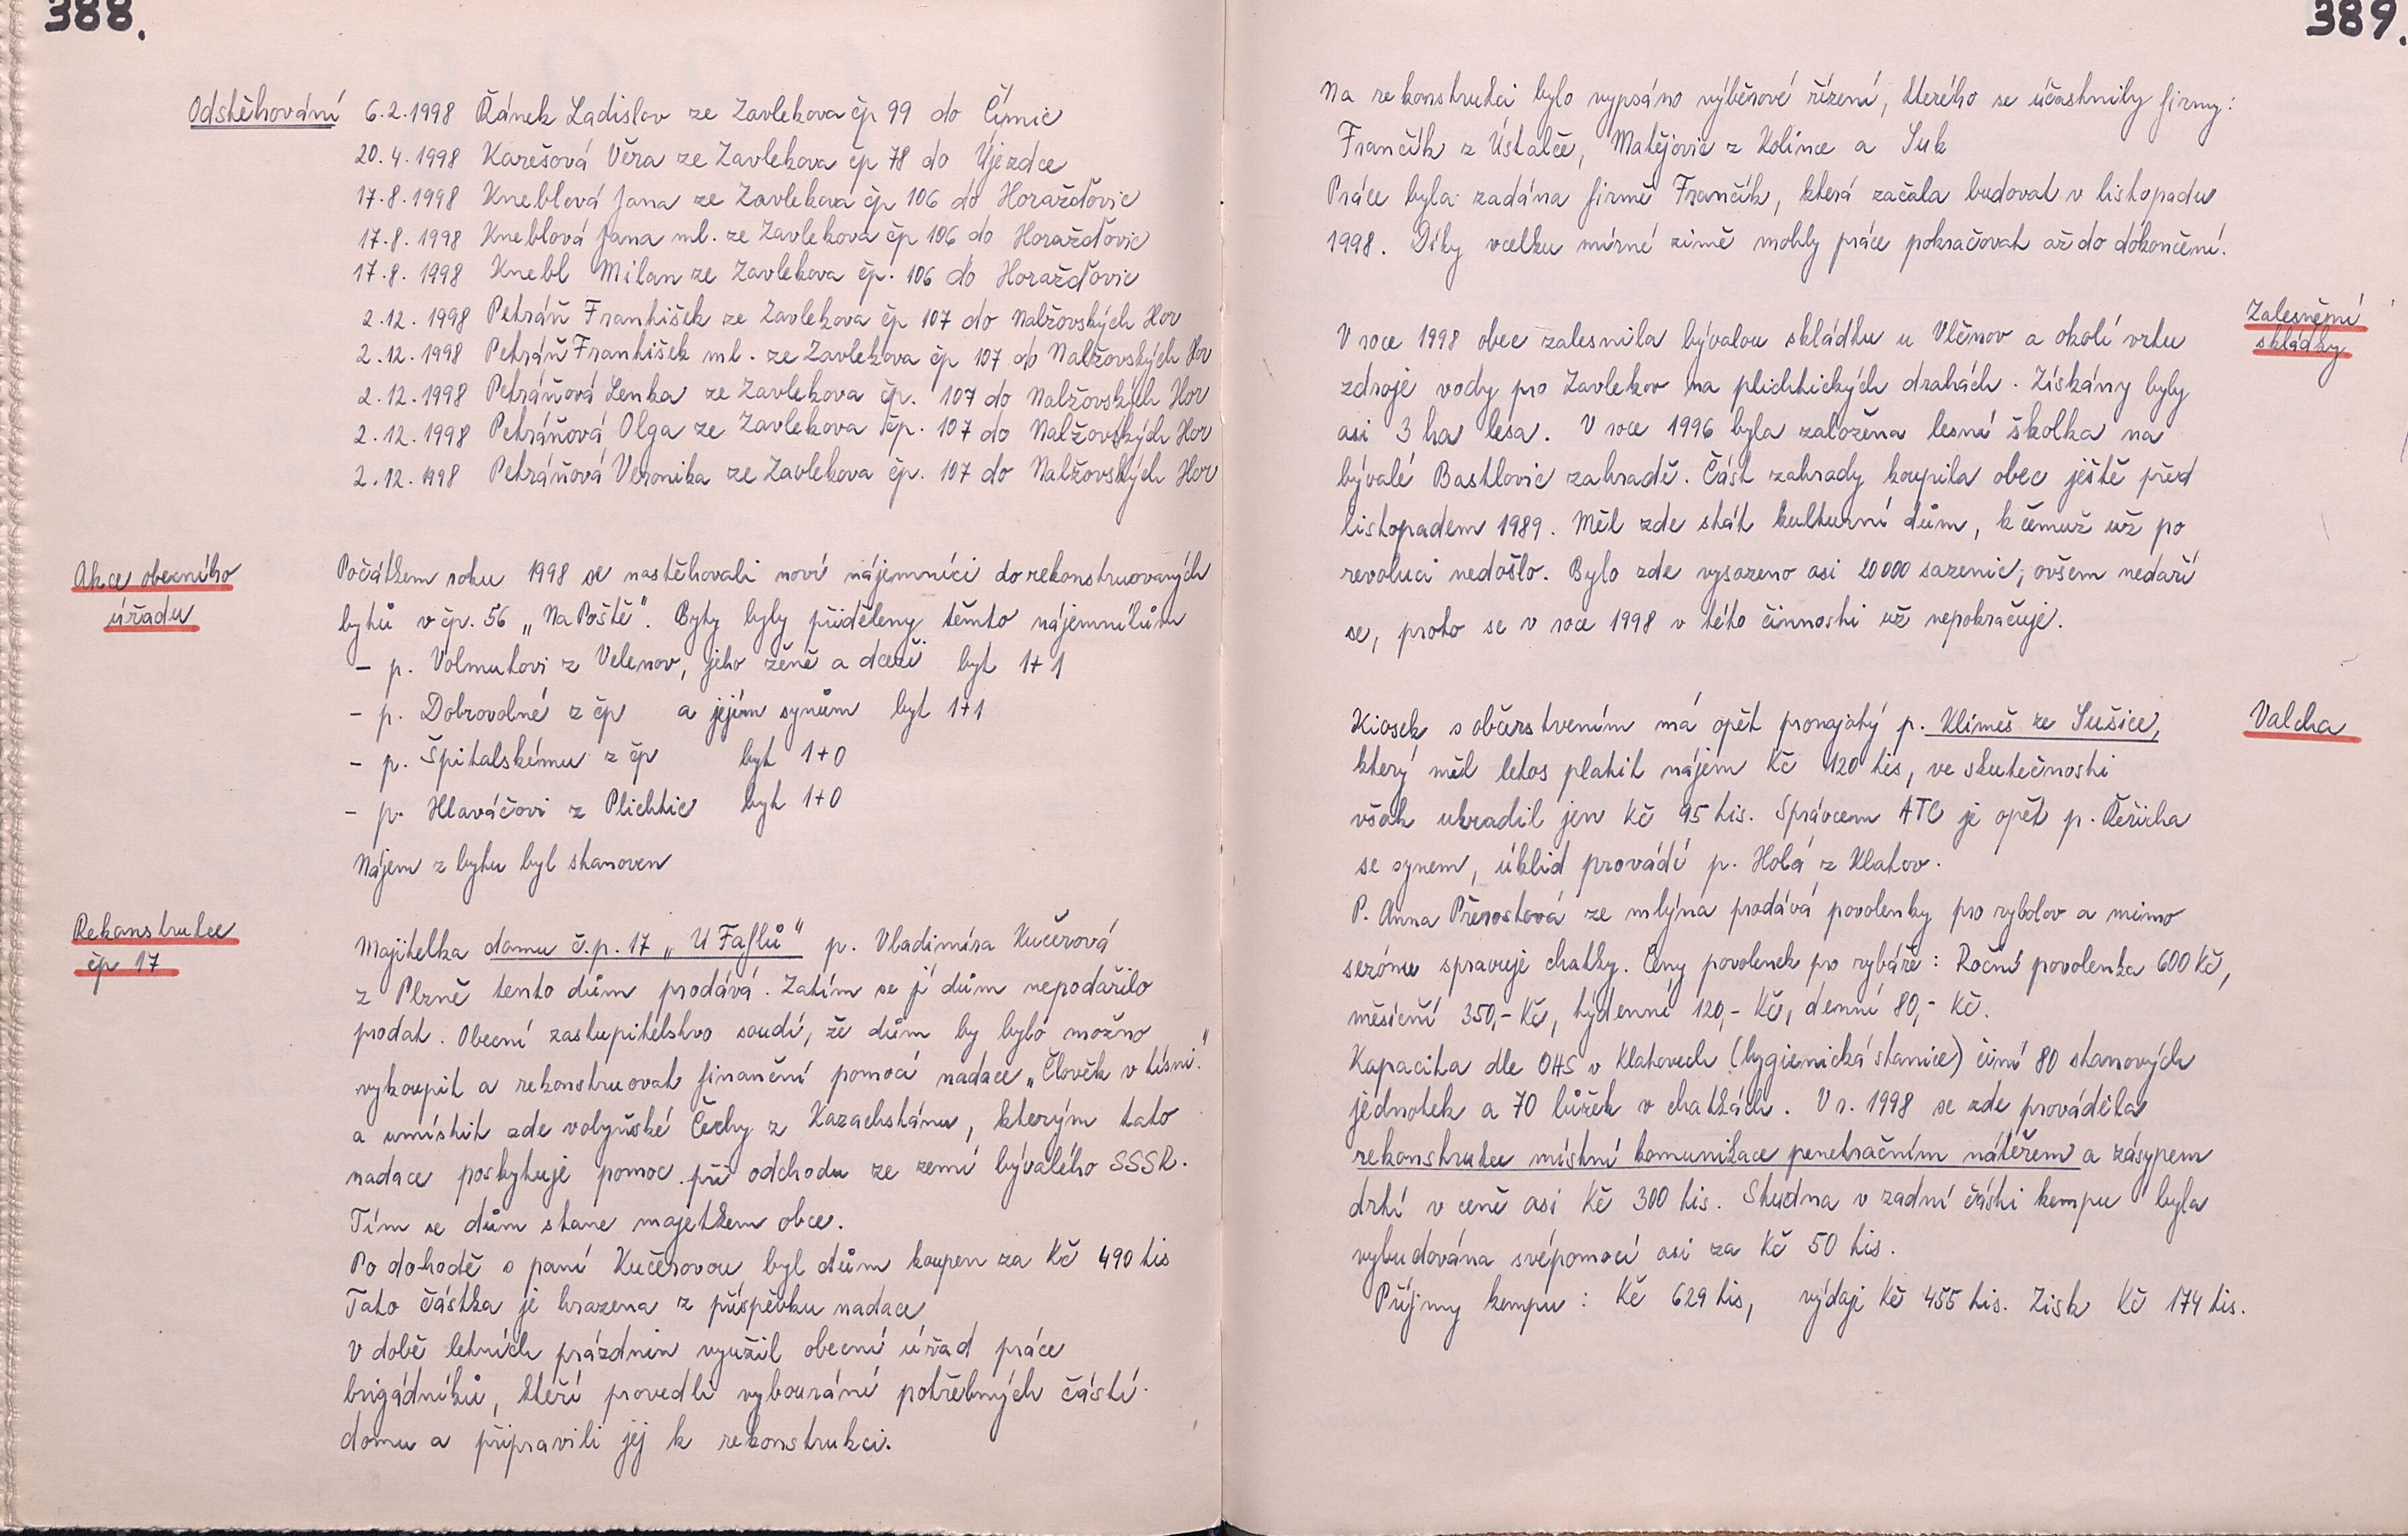 388.
Odstěhování 6.2.1998 Řánek Ladislav ze Zavlekova čp 99 do Čímic
20.4.1998 Karešová Věra ze Zavlekova čp 78 do Újezdce
17.8.1998 Kneblová Jana ze Zavlekova čp 106 do Horažďovic
17.8.1998 Kneblová Jana ml. ze Zavlekova čp 106 do Horažďovic
17.8.1998 Knebl Milan ze Zavlekova čp. 106 do Horažďovic
2.12.1998 Petráň František ze Zavlekova čp 107 do Nalžovských Hor
2.12.1998 Petráň František ml. ze Zavlekova čp 107 do Nalžovských Hor
2.12.1998 Petráňová Lenka ze Zavlekova čp. 107 do Nalžovských Hor
2.12.1998 Petráňová Olga ze Zavlekova čp. 107 do Nalžovských Hor
2.12.1998 Petráňová Veronika ze Zavlekova čp. 107 do Nalžovských Hor
Akce obecního
úřadu
Počátkem roku 1998 se nastěhovali noví nájemníci do rekonstruovaných
bytů v čp. 56 „Na Poště". Byty byly přiděleny těmto nájemníkům
- p. Volmutovi z Velenov, jeho ženě a dceři byt 1+1
- p. Dobrovolné z čp a jejím synům byt 1+1
- p. Špitalskému z čp byt 1+0
- p. Hlaváčovi z Plichtic byt 1+0
Nájem z bytu byl stanoven
Rekonstrukce
čp 17
Majitelka domu č.p. 17 „U Faflů" p. Vladimíra Kučerová
z Plzně tento dům prodává. Zatím se jí dům nepodařilo
prodat. Obecní zastupitelstvo soudí, že dům by bylo možno
vykoupit a rekonstruovat finanční pomocí nadace „Člověk v tísni."
a umístit zde volyňské Čechy z Kazachstánu, kterým tato
nadace poskytuje pomoc při odchodu ze zemí bývalého SSSR.
Tím se dům stane majetkem obce.
Po dohodě s paní Kučerovou byl dům koupen za Kč 490 tis
Tato částka je hrazena z příspěvku nadace
V době letních prázdnin využil obecní úřad práce
brigádníků, kteří provedli vybourání potřebných částí
domu a připravili jej k rekonstrukci.
389.
Na rekonstrukci bylo vypsáno výběrové řízení, kterého se účastnily firmy:
Frančík z Ústalče, Matějovic z Kolince a Suk
Práce byla zadána firmě Frančík, která začala budovat v listopadu
1998. Díky vcelku mírné zimě mohly práce pokračovat až do dokončení.
Zalesnění
skládky
V roce 1998 obec zalesnila bývalou skládku u Vlčnov a okolí vrtu
zdroje vody pro Zavlekov na plichtických drahách. Získány byly
asi 3 ha lesa. V roce 1996 byla založena lesní školka na
bývalé Bastlovic zahradě. Část zahrady koupila obec ještě před
listopadem 1989. Měl zde stát kulturní dům, k čemuž už po
revoluci nedošlo. Bylo zde vysazeno asi 20000 sazenic, ovšem nedaří
se, proto se v roce 1998 v této činnosti už nepokračuje.
Valcha
Kiosek s občerstvením má opět pronajatý p. Klimeš ze Sušice,
který měl letos platit nájem Kč 120 tis, ve skutečnosti
však uhradil jen Kč 95 tis. Správcem ATC je opět p. Řeřicha
se synem, úklid provádí p. Holá z Klatov.
P. Anna Přerostová ze mlýna prodává povolenky pro rybolov a mimo
sezónu spravuje chatky. Ceny povolenek pro rybáře: Roční povolenka 600 Kč,
měsíční 350,- Kč, týdenní 120,- Kč, denní 80,- Kč.
Kapacita dle OHS v Klatovech (hygienická stanice) činí 80 stanových
jednotek a 70 lůžek v chatkách. V r. 1998 se zde prováděla
rekonstrukce místní komunikace penetračním nátěrem a zásypem
drtí v ceně asi Kč 300 tis. Studna v zadní části kempu byla
vybudována svépomocí asi za Kč 50 tis.
Příjmy kempu: Kč 629 tis, výdaje Kč 455 tis. Zisk Kč 174 tis.